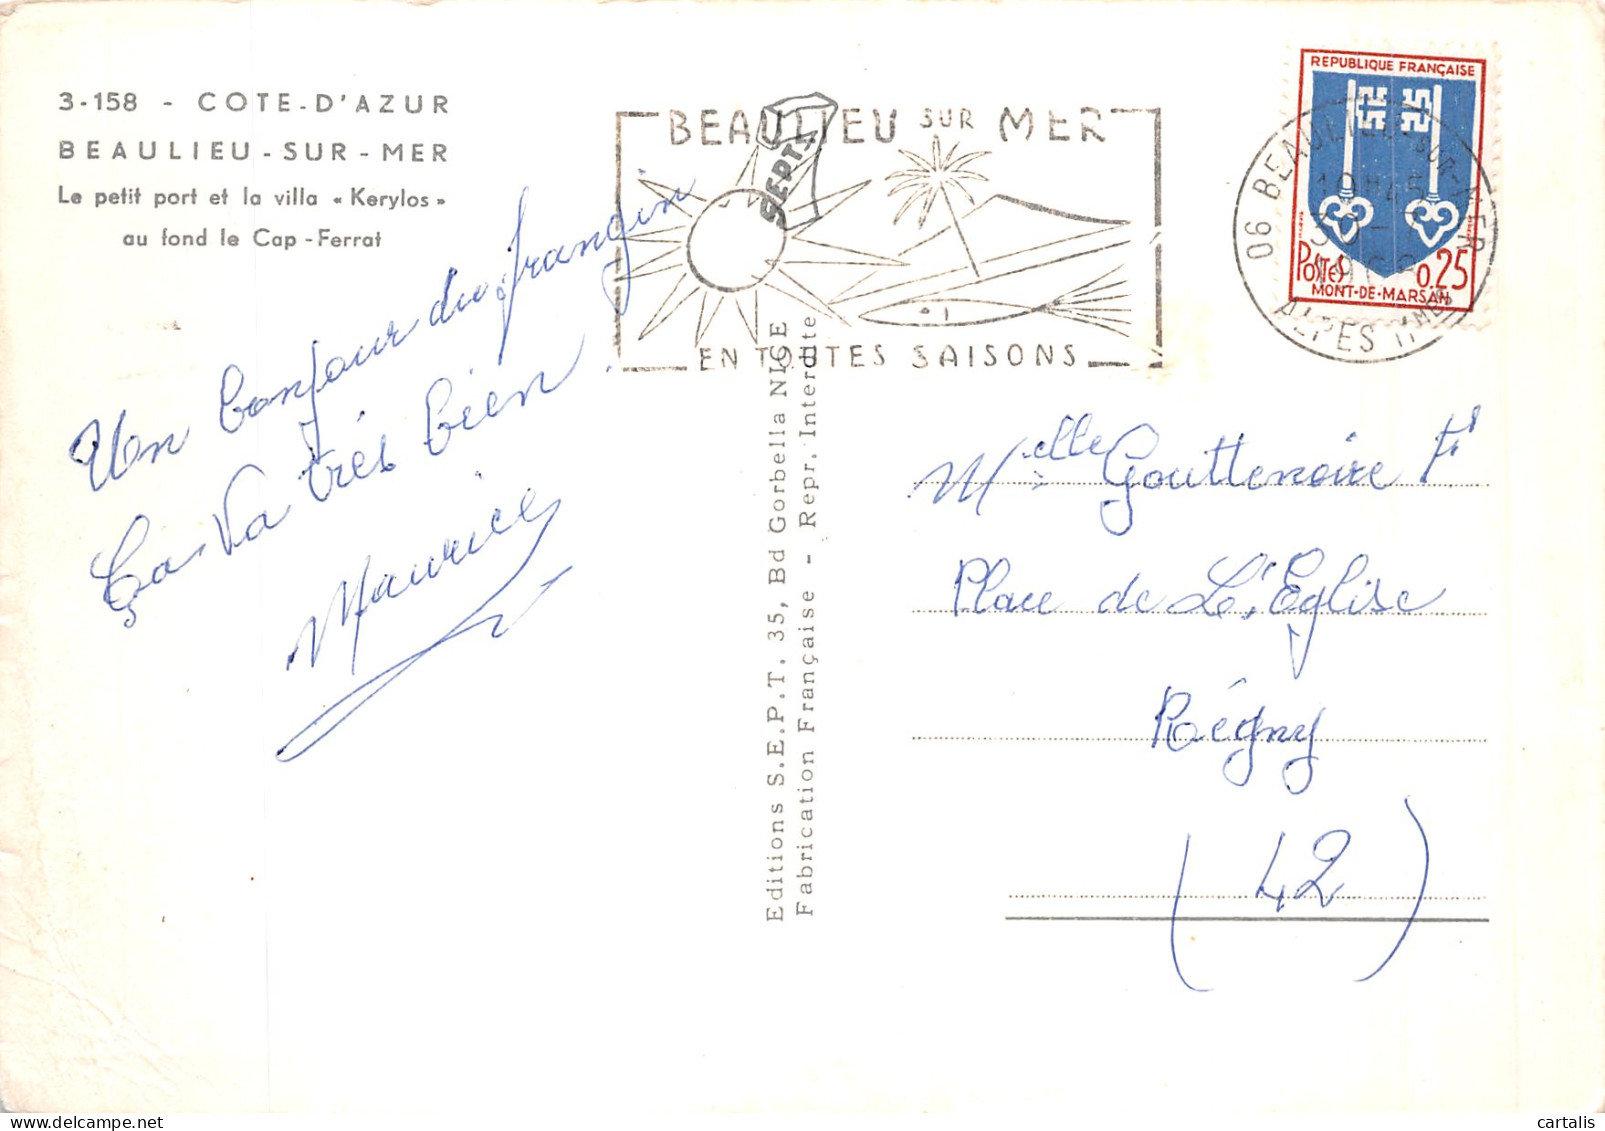 3-158 - COTE-D'AZUR
BEAULIEU-SUR-MER
Le petit port et la villa « Kerylos »
au fond le Cap-Ferrat
Un bonjour du frangin
Ça va très bien.
Maurice
BEAULIEU SUR MER
EN TOUTES SAISONS
SEPT
Editions S.E.P.T. 35, Bd Gorbella NICE
Fabrication Française - Repr. Interdite
REPUBLIQUE FRANÇAISE
POSTES 0.25
MONT-DE-MARSAN
06 BEAULIEU-SUR-MER
19H45
ALPES MMES
Melle Gouttenoire
Place de L'Eglise
Régny
(42)
cartalis